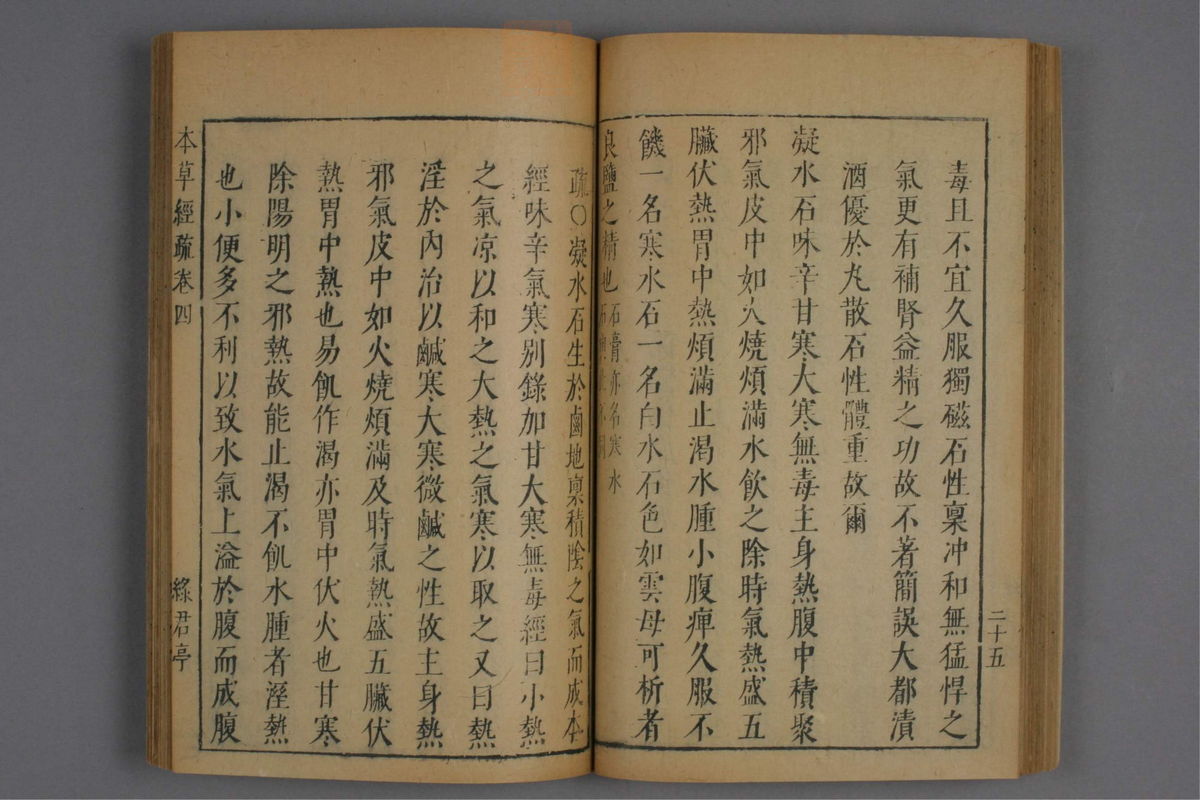 毒且不宜久服獨磁石性稟冲和無猛悍之
氣更有補腎益精之功故不著簡誤大都漬
酒優於丸散石性體重故爾
凝水石味辛甘寒大寒無毒主身熱腹中積聚
邪氣皮中如火燒煩滿水飲之除時氣熱盛五
臟伏熱胃中熱煩滿止渴水腫小腹痺久服不
饑一名寒水石一名白水石色如雲母可析者
良鹽之精也
石膏亦名寒水
二十五
疏○凝水石生於鹵地稟積陰之氣而成本
經味辛氣寒別錄加甘大寒無毒經曰小熱
之氣凉以和之大熱之氣寒以取之又曰熱
淫於內治以鹹寒大寒微鹹之性故主身熱
邪氣皮中如火燒煩滿及時氣熱盛五臟伏
熱胃中熱也易飢作渴亦胃中伏火也甘寒
除陽明之邪熱故能止渴不飢水腫者溼熱
也小便多不利以致水氣上溢於腹而成腹
本草經疏卷四
綠君亭